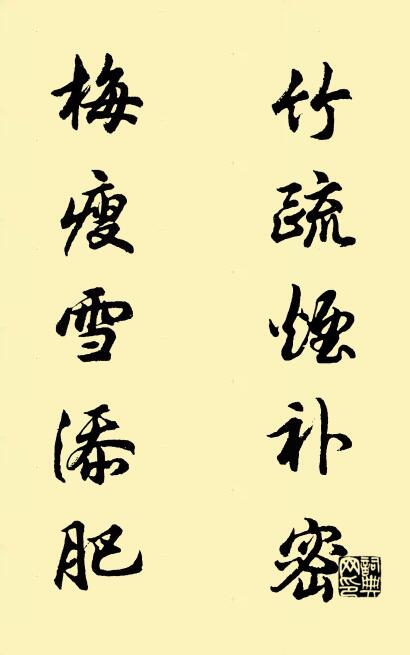 竹疏煙补密
梅瘦雪添肥
詞典网印